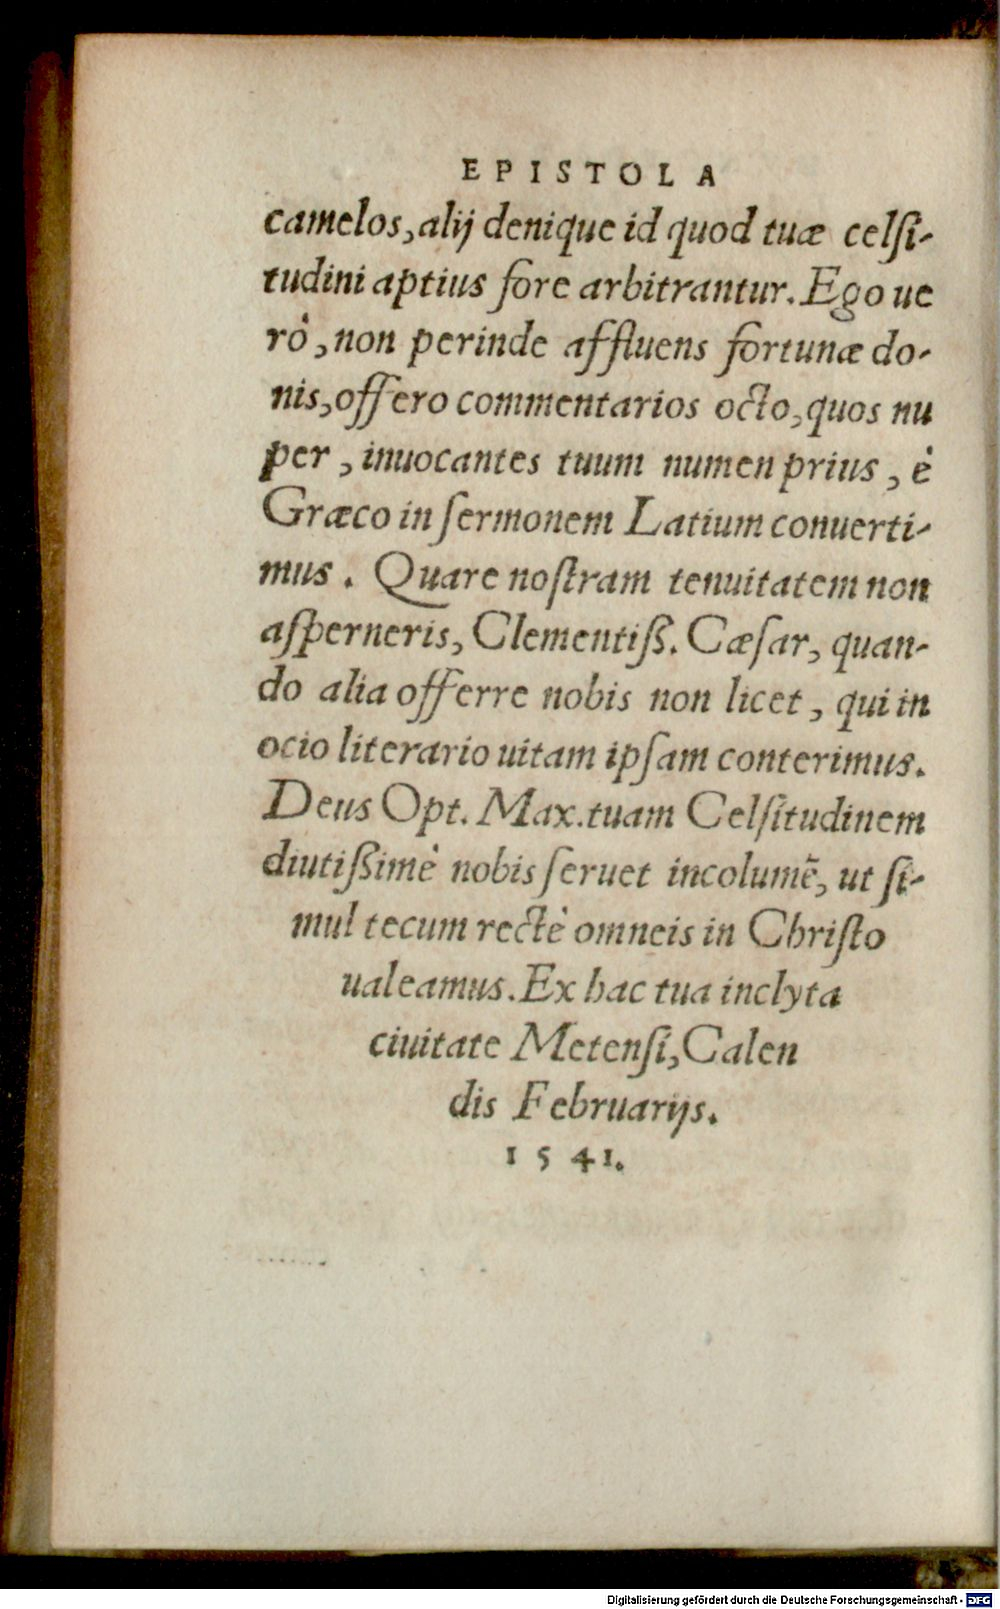 EPISTOLA
camelos, alij denique id quod tuæ celſi-
tudini aptius fore arbitrantur. Ego ue
rò, non perinde affluens fortunæ do-
nis, offero commentarios octo, quos nu
per, inuocantes tuum numen prius, è
Græco in ſermonem Latium conuerti-
mus. Quare noſtram tenuitatem non
aſperneris, Clementiß. Cæſar, quan-
do alia offerre nobis non licet, qui in
ocio literario uitam ipſam conterimus.
Deus Opt. Max. tuam Celſitudinem
diutißimè nobis ſeruet incolumẽ, ut ſi-
mul tecum rectè omneis in Chriſto
ualeamus. Ex hac tua inclyta
ciuitate Metenſi, Calen
dis Februarijs.
1541.
Digitalisierung gefördert durch die Deutsche Forschungsgemeinschaft - DFG